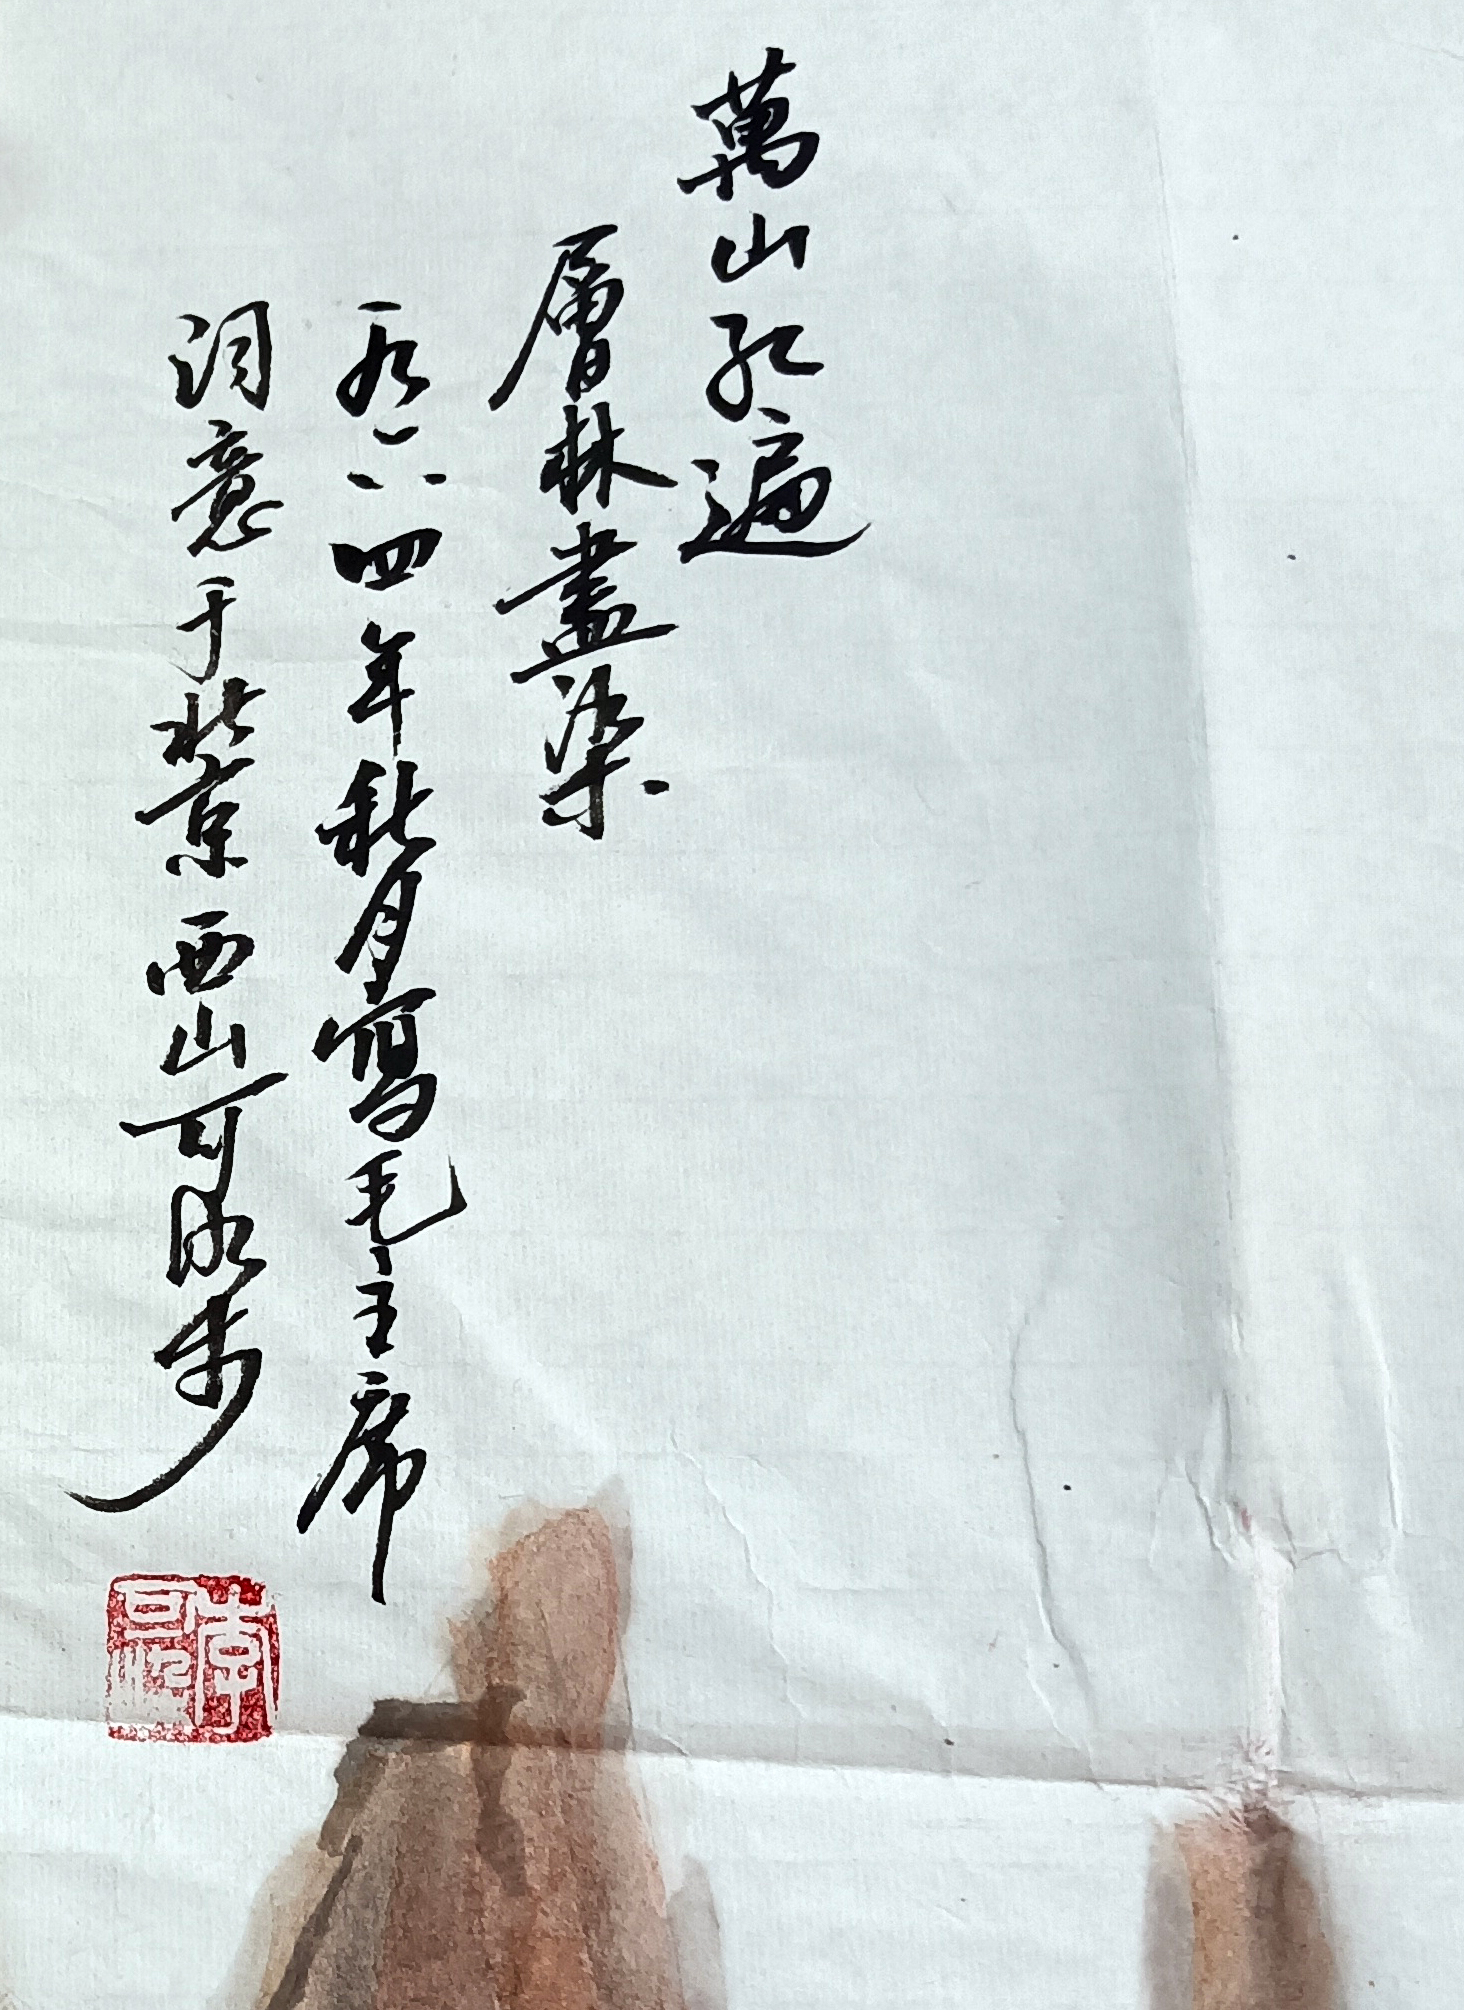 萬山紅遍
層林盡染
一九六四年秋月寫毛主席
詞意于北京西山可染
李